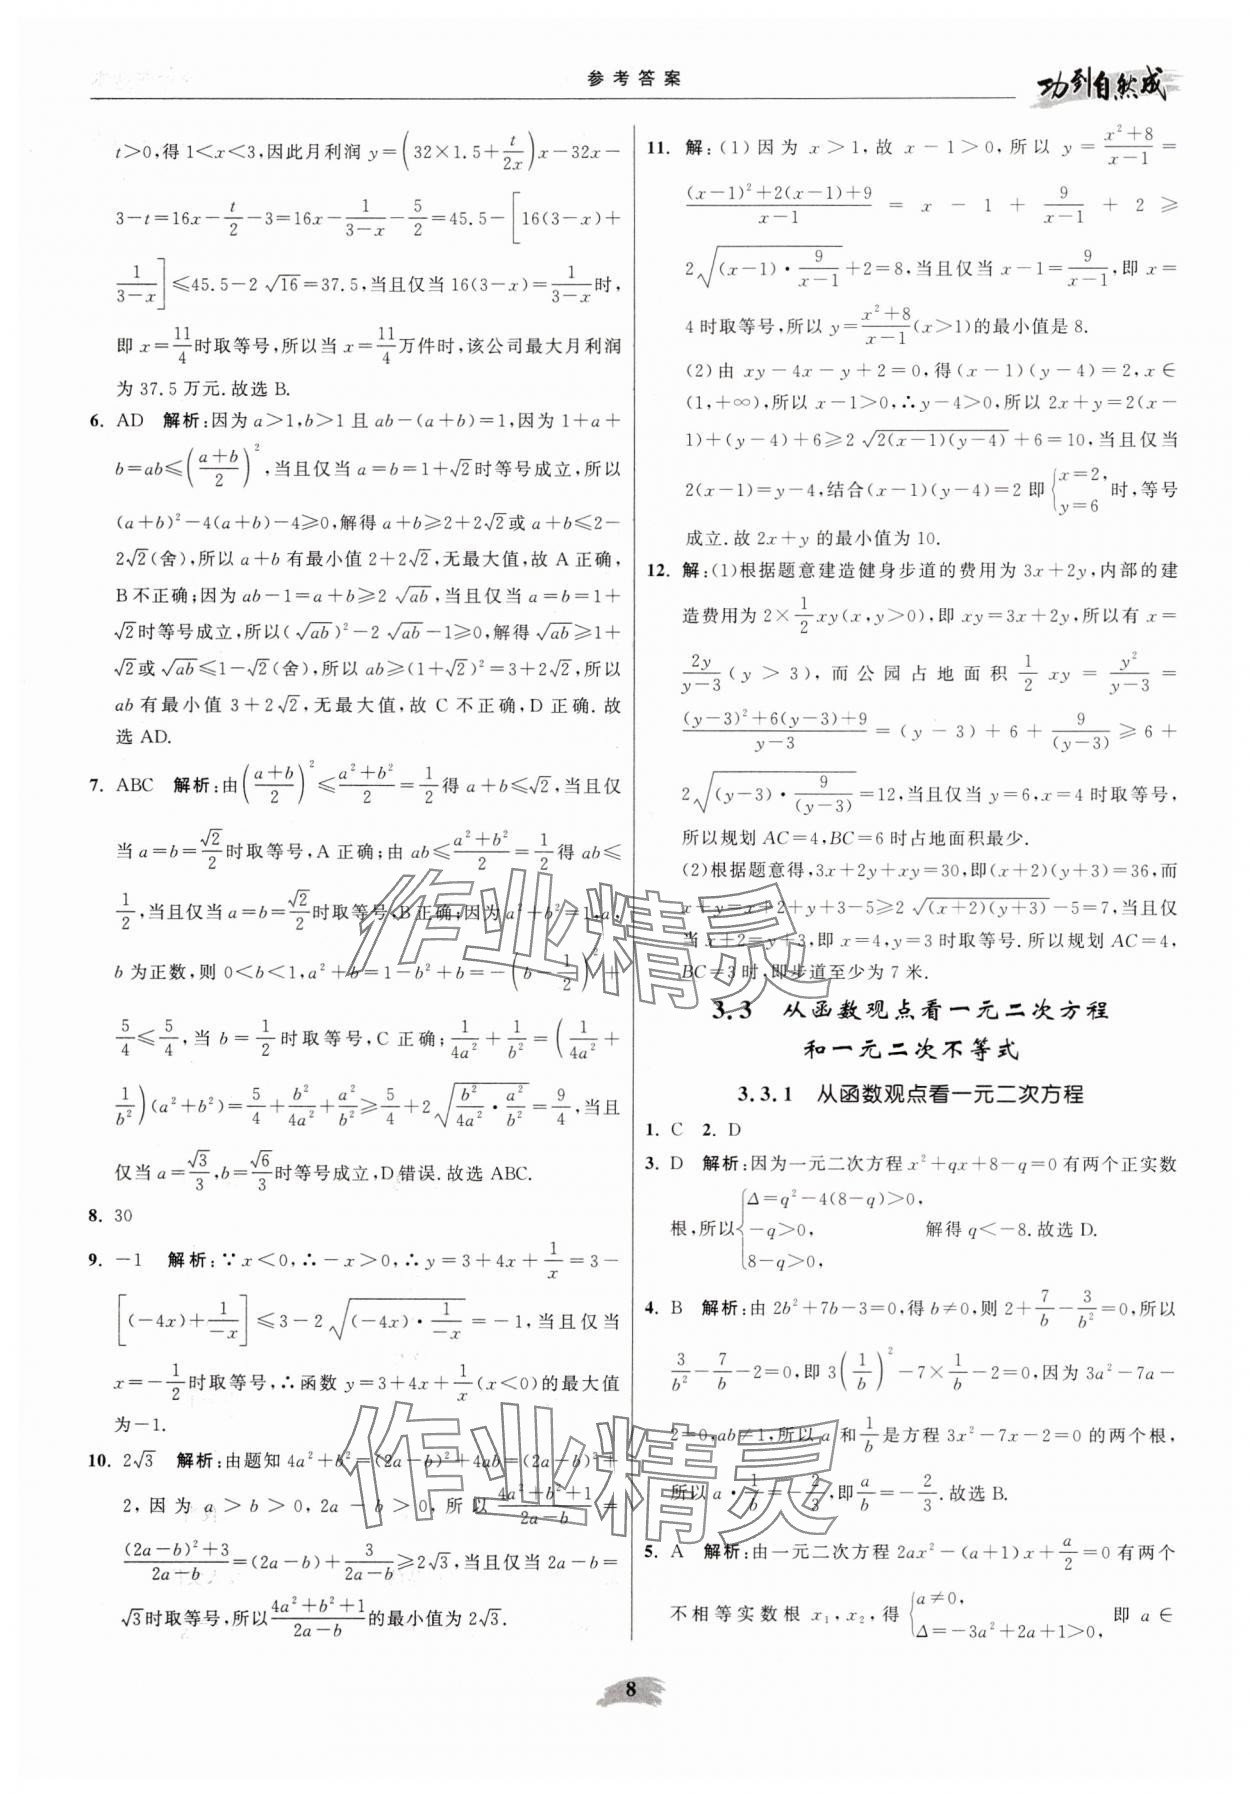 参考答案
功到自然成
t>0,得 1<x<3,因此月利润 y=(32×1.5+t/(2x))x-32x-
3-t=16x-t/2-3=16x-1/(3-x)-5/2=45.5-[16(3-x)+
1/(3-x)]≤45.5-2√16=37.5,当且仅当 16(3-x)=1/(3-x)时,
即 x=11/4时取等号,所以当 x=11/4万件时,该公司最大月利润
为 37.5 万元.故选 B.
6. AD 解析:因为 a>1,b>1 且 ab-(a+b)=1,因为 1+a+
b=ab≤((a+b)/2)²,当且仅当 a=b=1+√2时等号成立,所以
(a+b)²-4(a+b)-4≥0,解得 a+b≥2+2√2或 a+b≤2-
2√2(舍),所以 a+b 有最小值 2+2√2,无最大值,故 A 正确,
B 不正确;因为 ab-1=a+b≥2√ab,当且仅当 a=b=1+
√2时等号成立,所以(√ab)²-2√ab-1≥0,解得√ab≥1+
√2或√ab≤1-√2(舍),所以 ab≥(1+√2)²=3+2√2,所以
ab 有最小值 3+2√2,无最大值,故 C 不正确,D 正确.故
选 AD.
7. ABC 解析:由((a+b)/2)²≤(a²+b²)/2=1/2得 a+b≤√2,当且仅
当 a=b=√2/2时取等号,A 正确;由 ab≤(a²+b²)/2=1/2得 ab≤
1/2,当且仅当 a=b=√2/2时取等号,B 正确;因为 a²+b²=1,a,
b 为正数,则 0<b<1,a²+b=1-b²+b=-(b-1/2)²+
5/4≤5/4,当 b=1/2时取等号,C 正确;1/(4a²)+1/b²=(1/(4a²)+
1/b²)(a²+b²)=5/4+b²/(4a²)+a²/b²≥5/4+2√(b²/(4a²)·a²/b²)=9/4,当且
仅当 a=√3/3,b=√6/3时等号成立,D 错误.故选 ABC.
8. 30
9. -1 解析:∵x<0,∴-x>0,∴y=3+4x+1/x=3-
[(-4x)+1/(-x)]≤3-2√((-4x)·1/(-x))=-1,当且仅当
x=-1/2时取等号,∴函数 y=3+4x+1/x(x<0)的最大值
为-1.
10. 2√3 解析:由题知 4a²+b²=(2a-b)²+4ab=(2a-b)²+
2,因为 a>b>0,2a-b>0,所以(4a²+b²+1)/(2a-b)=
((2a-b)²+3)/(2a-b)=(2a-b)+3/(2a-b)≥2√3,当且仅当 2a-b=
√3时取等号,所以(4a²+b²+1)/(2a-b)的最小值为 2√3.
11. 解:(1)因为 x>1,故 x-1>0,所以 y=(x²+8)/(x-1)=
((x-1)²+2(x-1)+9)/(x-1)=x-1+9/(x-1)+2≥
2√((x-1)·9/(x-1))+2=8,当且仅当 x-1=9/(x-1),即 x=
4 时取等号,所以 y=(x²+8)/(x-1)(x>1)的最小值是 8.
(2)由 xy-4x-y+2=0,得(x-1)(y-4)=2,x∈
(1,+∞),所以 x-1>0,∴y-4>0,所以 2x+y=2(x-
1)+(y-4)+6≥2√(2(x-1)(y-4))+6=10,当且仅当
2(x-1)=y-4,结合(x-1)(y-4)=2 即{x=2,y=6时,等号
成立.故 2x+y 的最小值为 10.
12. 解:(1)根据题意建造健身步道的费用为 3x+2y,内部的建
造费用为 2×1/2xy(x,y>0),即 xy=3x+2y,所以有 x=
2y/(y-3)(y>3),而公园占地面积1/2xy=y²/(y-3)=
((y-3)²+6(y-3)+9)/(y-3)=(y-3)+6+9/(y-3)≥6+
2√((y-3)·9/(y-3))=12,当且仅当 y=6,x=4 时取等号,
所以规划 AC=4,BC=6 时占地面积最少.
(2)根据题意得,3x+2y+xy=30,即(x+2)(y+3)=36,而
x+y=x+2+y+3-5≥2√((x+2)(y+3))-5=7,当且仅
当 x+2=y+3,即 x=4,y=3 时取等号.所以规划 AC=4,
BC=3 时,即步道至少为 7 米.
3.3 从函数观点看一元二次方程
和一元二次不等式
3.3.1 从函数观点看一元二次方程
1. C 2. D
3. D 解析:因为一元二次方程 x²+qx+8-q=0 有两个正实数
根,所以{Δ=q²-4(8-q)>0,-q>0,8-q>0, 解得 q<-8.故选 D.
4. B 解析:由 2b²+7b-3=0,得 b≠0,则 2+7/b-3/b²=0,所以
3/b²-7/b-2=0,即 3(1/b)²-7×1/b-2=0,因为 3a²-7a-
2=0,ab≠1,所以 a 和1/b是方程 3x²-7x-2=0 的两个根,
所以 a·1/b=-2/3,即a/b=-2/3.故选 B.
5. A 解析:由一元二次方程 2ax²-(a+1)x+a/2=0 有两个
不相等实数根 x₁,x₂,得{a≠0,Δ=-3a²+2a+1>0, 即 a∈
8
作业精灵
作业精灵